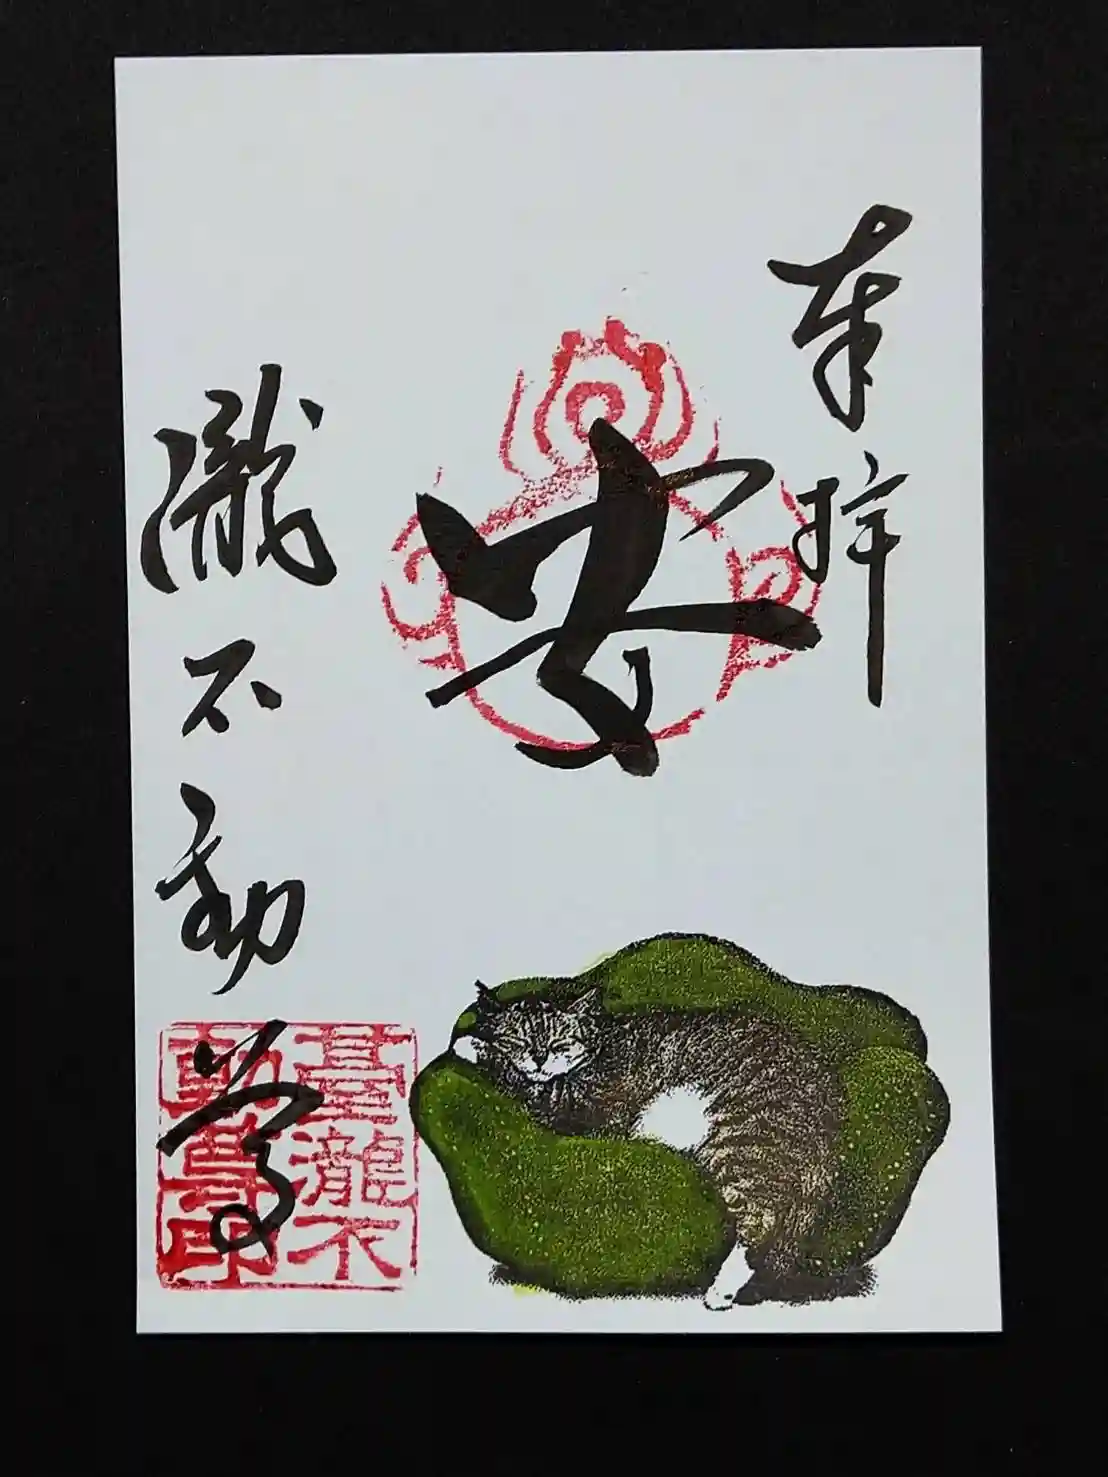 奉拝
安
瀧不動尊
臺瀧不
動尊印